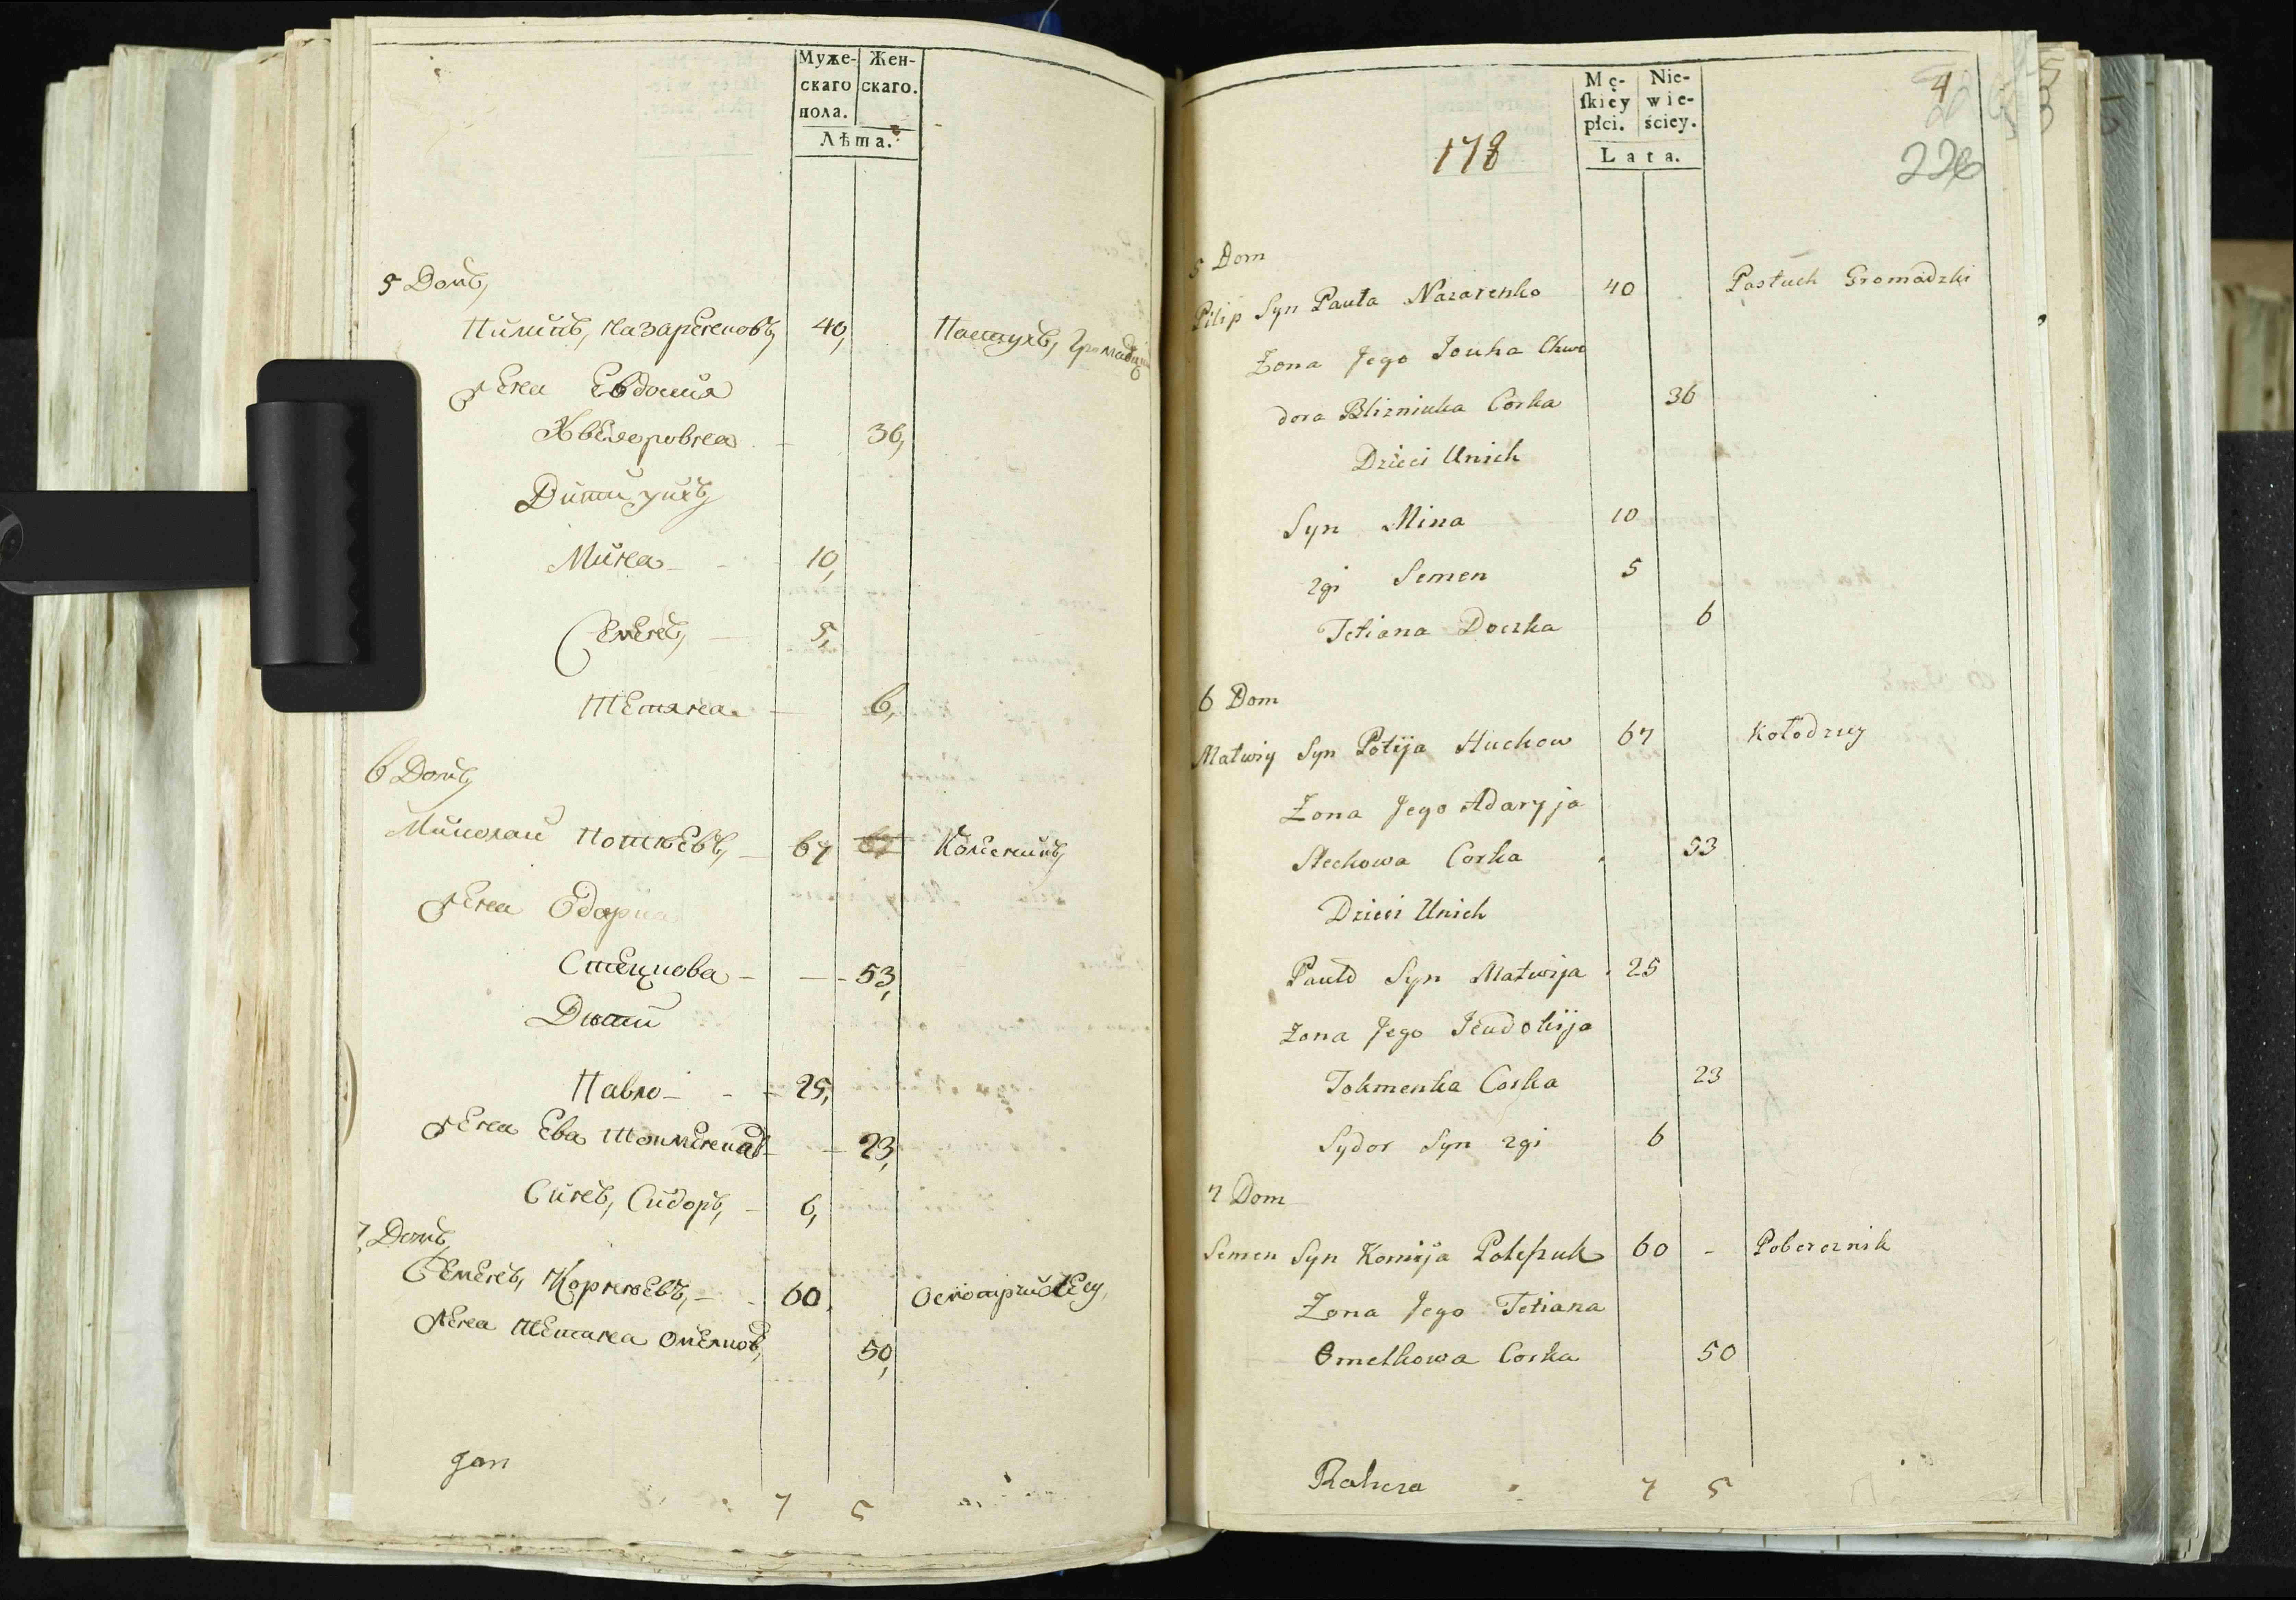 Муже-
скаго
пола.
Жен-
скаго.
Лѣта.
5 Домъ,
Пилипъ, Назаренковъ, 40, Пастухъ, Громадзкий
Жена Евдокия
Хведоровна - 36,
Дити унихъ
Мина - - 10,
Семенъ, - 5,
Тетяна - 6,
6 Домъ
Потиевъ, - 67 67
Жена Одария
Стецкова - - - 53,
Дити
Павло - - - 25,
Жена Ева Токменкова - - 23,
Синъ, Сидоръ, - 6,
7 Домъ
Семенъ, Корниевъ, - - 60,
Жена Тетяна Омелков, 50,
7 5
Mę-
ſkiey
płci.
Nie-
wie-
ściey.
Lata.
4
178
226
5 Dom
Pilip Syn Pauła Nazarenko 40 Pastuch Gromadzki
Żona Jego Jouha Chwe
dora Blizniuka Corka 36
Dzieci Unich
Syn Mina 10
2gi Semen 5
Tetiana Doczka 6
6 Dom
Matwiy Syn Potija Huchow 67 Kołodziy
Żona Jego Adaryja
Stechowa Corka 53
Dzieci Unich
Pauło Syn Matwija 25
Żona Jego Jeudokija
Tokmenka Corka 23
Sydor Syn 2gi 6
7 Dom
Semen Syn Kornija 60 - Pobereznik
Żona Jego Tetiana
Omelkowa Corka 50
7 5